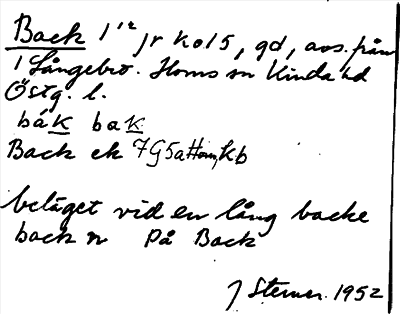 Back 1¹² jr ko15, gd, avs. från
1 Långebro. Horns sn Kinda hd
Östg. l.
båk bak
Back ek 7G5a Horn, kb
beläget vid en lång backe
back n På Back
J Sterner 1952